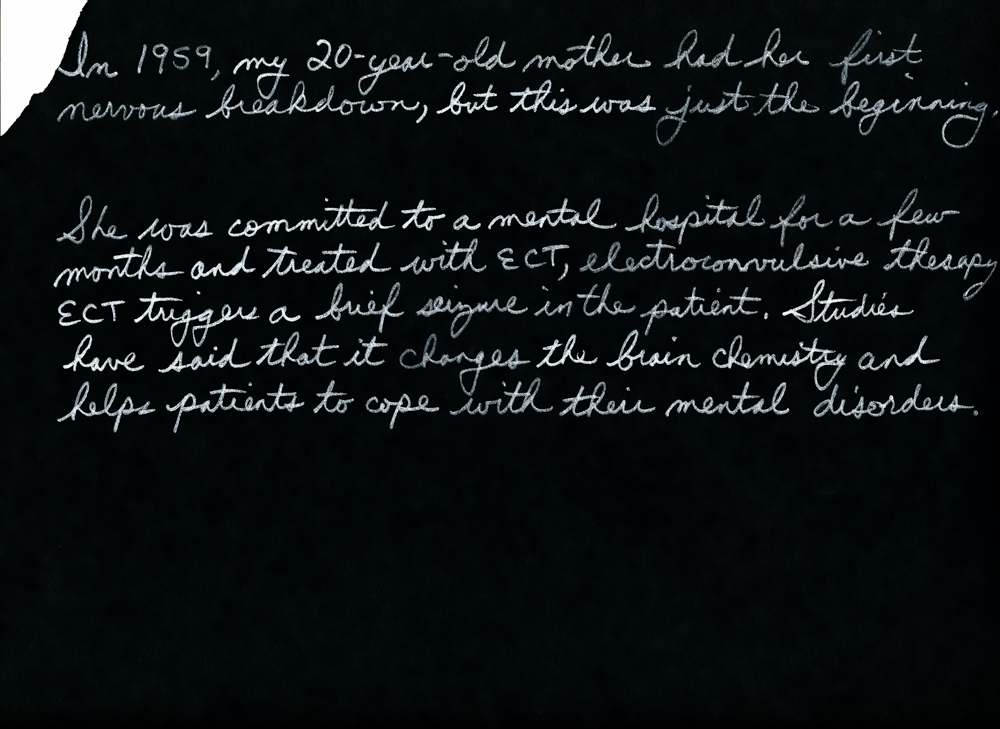 In 1959, my 20-year-old mother had her first
nervous breakdown, but this was just the beginning.
She was committed to a mental hospital for a few
months and treated with ECT, electroconvulsive therapy
ECT triggers a brief seizure in the patient. Studies
have said that it changes the brain chemistry and
helps patients to cope with their mental disorders.